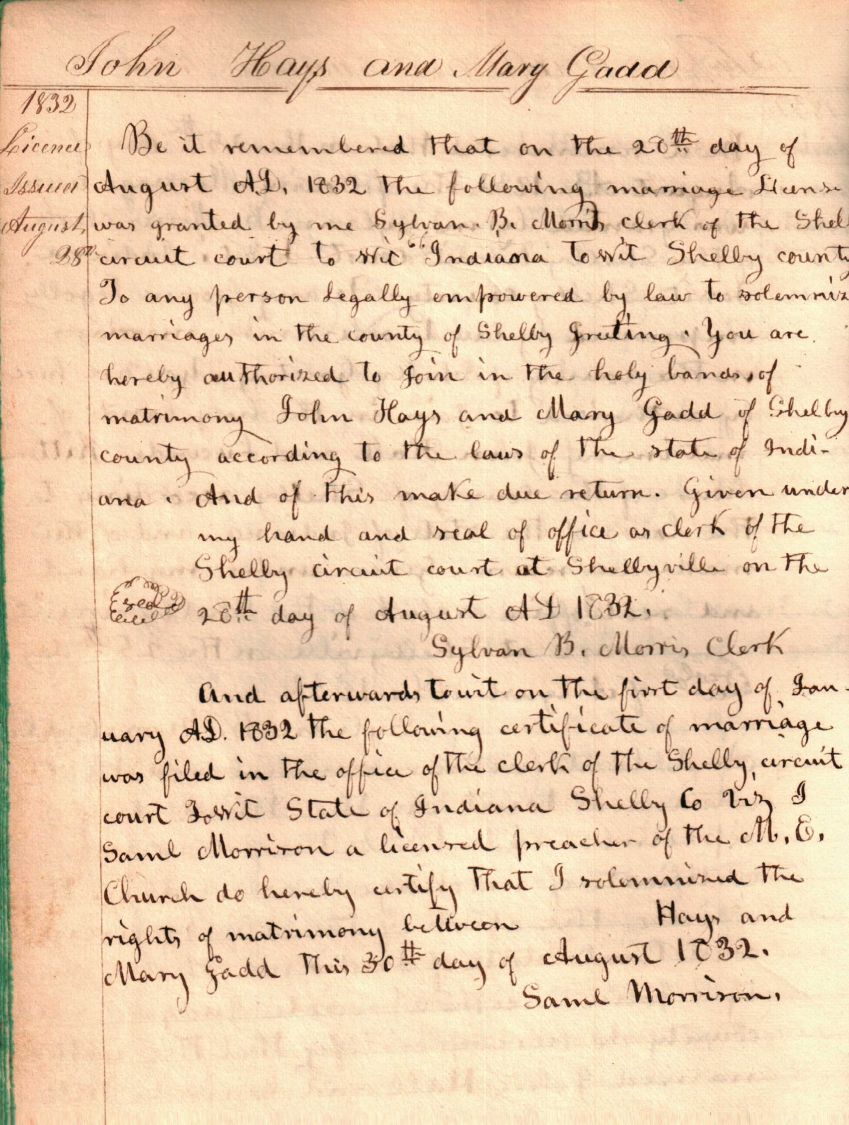 John Hays and Mary Gadd
1832
Licence
Issued
August
28th
Be it remembered that on the 28th day of
August AD, 1832 the following marriage License
was granted by me Sylvan B. Morris clerk of the Shel
circuit court to wit "Indiana Towit Shelby county
To any person Legally empowered by law to solemniz
marriages in the county of Shelby Greeting. You are
hereby authorized to Join in the holy bands of
matrimony John Hays and Mary Gadd of Shelby
county according to the laws of the state of Indi-
ana. And of this make due return. Given under
my hand and seal of office as clerk of the
Shelby circuit court at Shelbyville on the
seal
28th day of August AD 1832.
Sylvan B. Morris Clerk
And afterwards towit on the first day of Jan-
uary AD. 1832 the following certificate of marriage
was filed in the office of the clerk of the Shelby circuit
court Towit State of Indiana Shelby Co Viz I
Saml Morrison a licensed preacher of the M. E.
Church do hereby certify that I solemnized the
rights of matrimony between Hays and
Mary Gadd this 30th day of August 1832.
Saml Morrison.